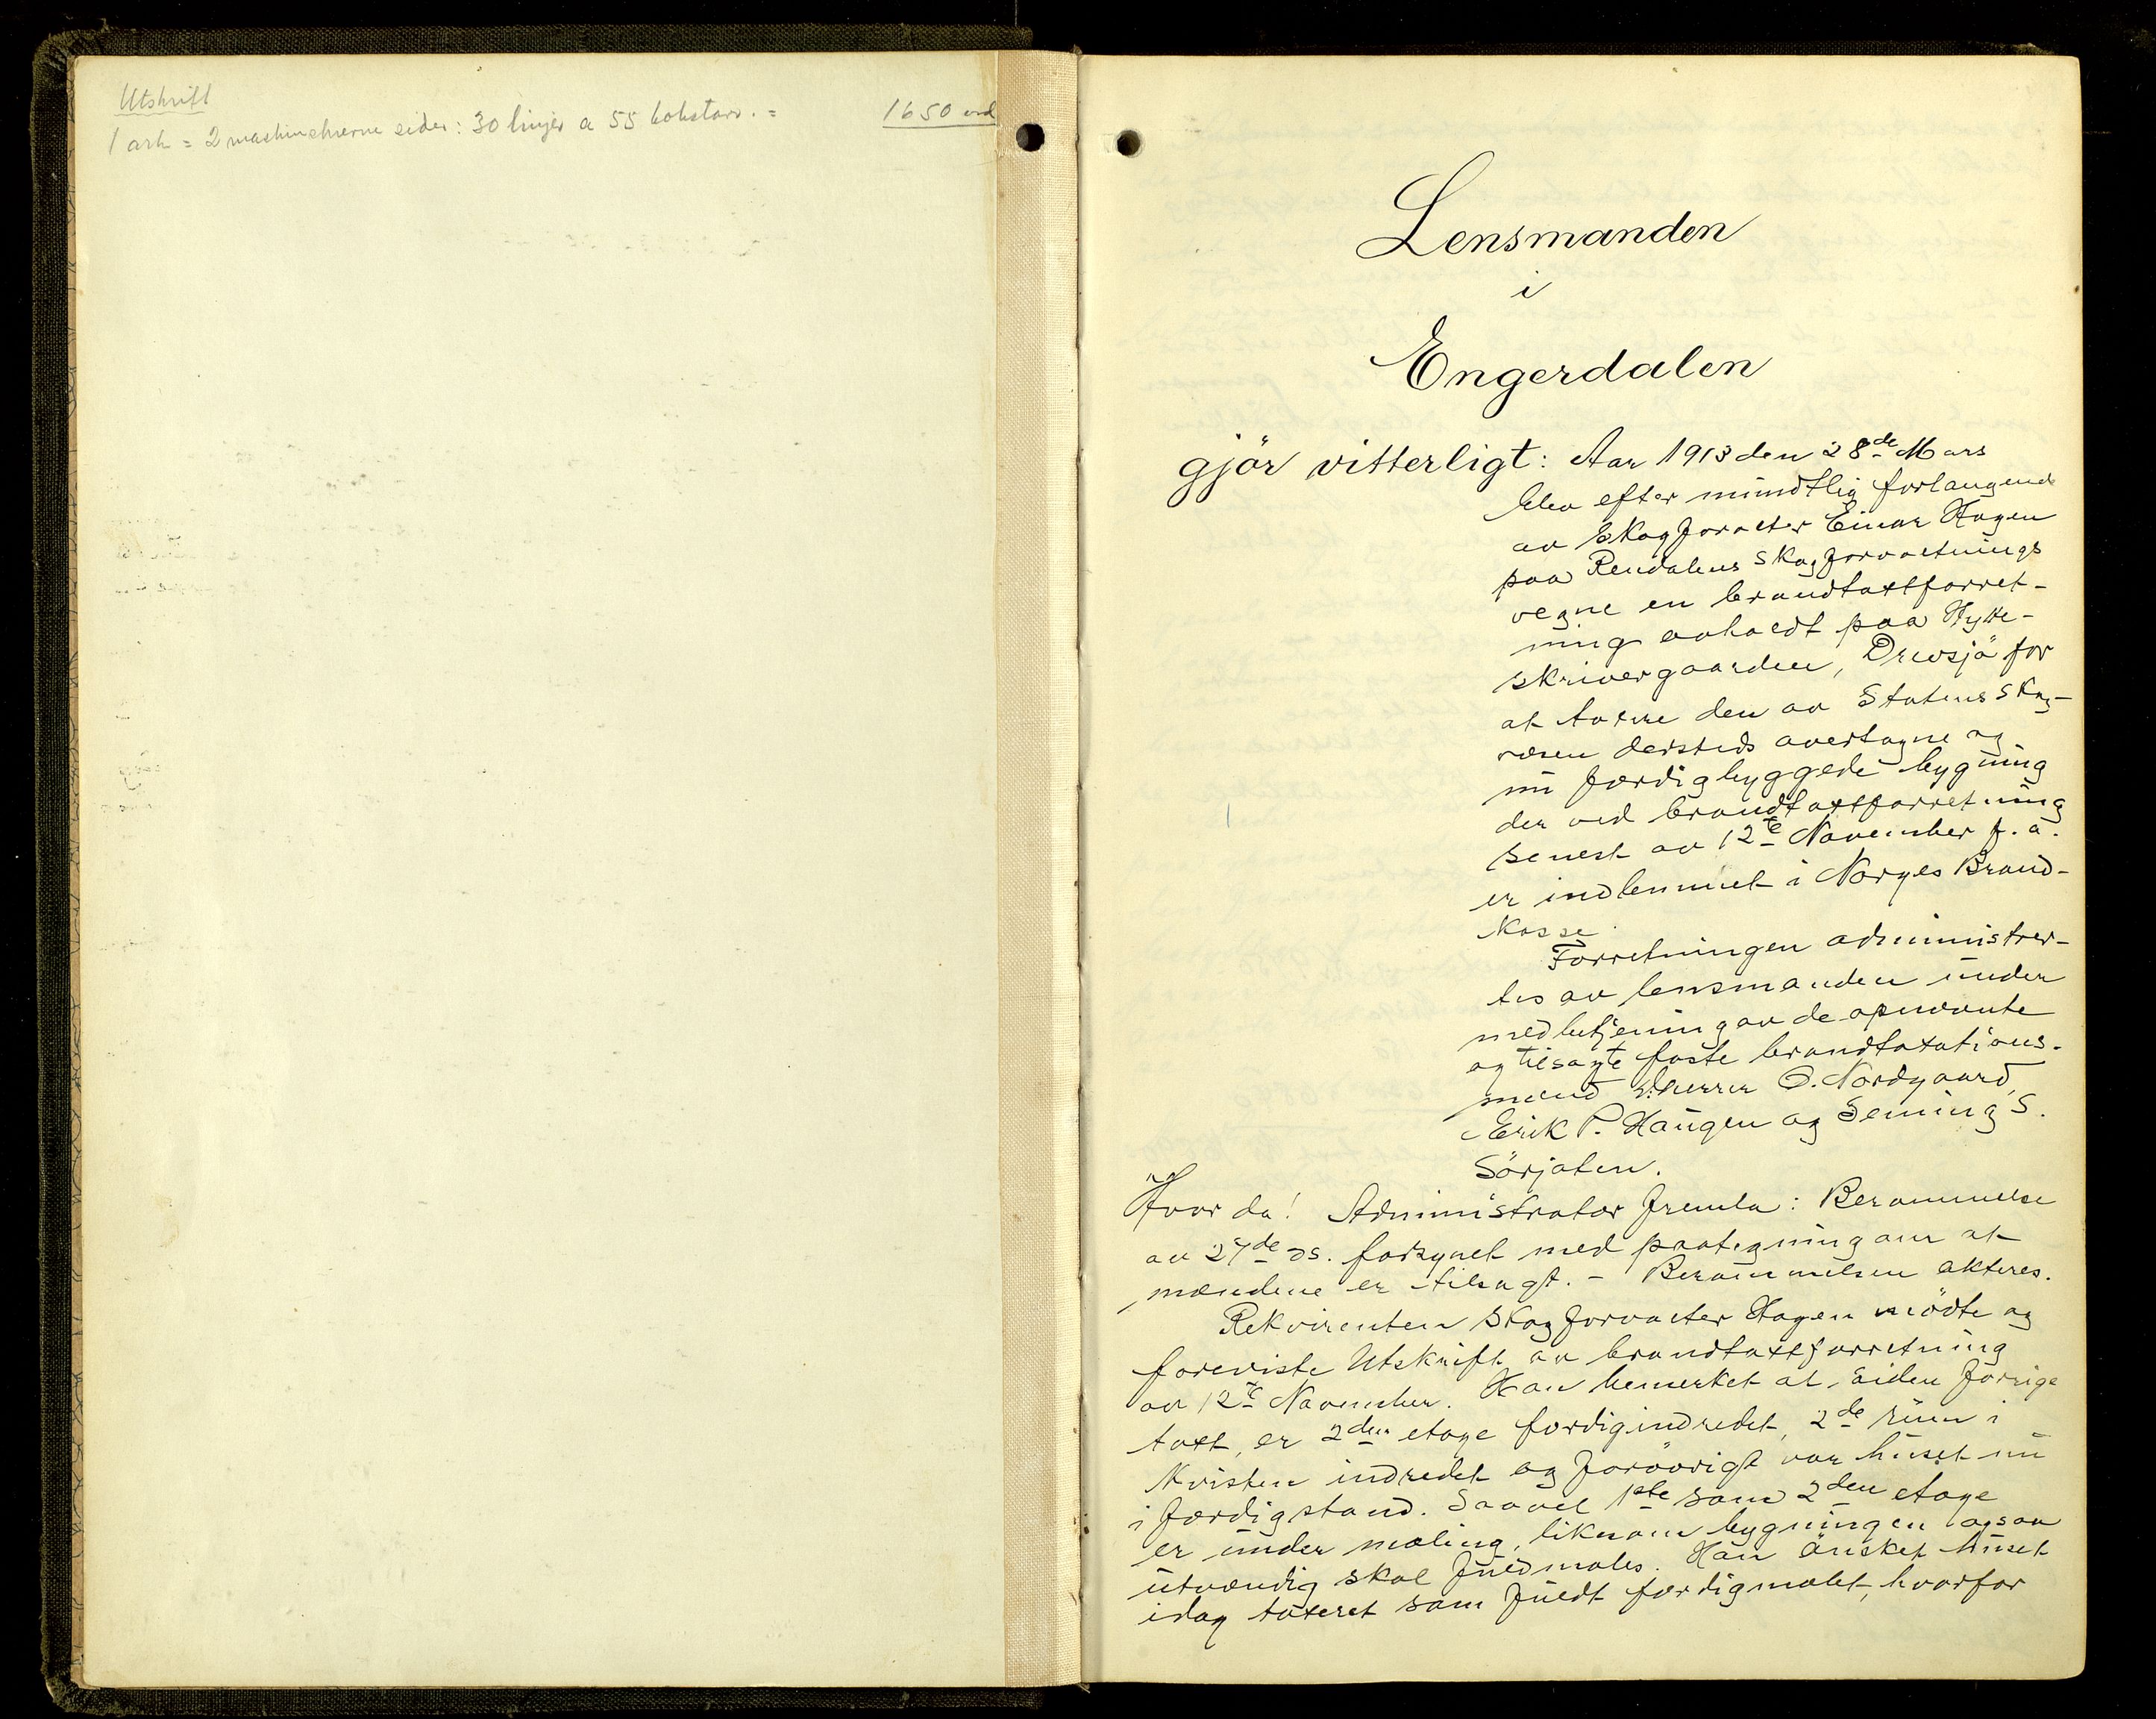 Utskrift
1 ark = 2 maskinskrevne sider: 30 linjer a 55 bokstav. = 1650 ord
Lensmanden
i
Engerdalen
gjör vitterligt: Aar 1913 den 28de Mars
blev efter mundtlig forlangende
av Skogforvalter Einar Hagen
paa Rendalens Skogforvaltnings
vegne en brandtaxtforret-
ning avholdt paa Hytte-
skrivergaarden, Drevsjö for
at taxere den av Statens Skog-
væsen dersteds overtagne og
nu færdigbyggede bygning
der ved brandtaxtforretning
senest av 12te November f. a.
er indlemmet i Norges Brand-
kasse.
Forretningen administrer-
tes av lensmanden under
medbetjening av de opnævnte
og tilsagte faste brandtaxations-
mænd d'herrer O. Nordgaard,
Erik P. Haugen og Semming S.
Sörjoten.
Hvor da! Administrator fremla: Berammelse
av 27de ds. forsynet med paategning om at
mændene er tilsagt. - Berammelsen akteres.
Rekvirenten Skogforvalter Hagen mödte og
foreviste Utskrift av brandtaxtforretning
av 12te November. Han bemerket at siden forrige
taxt, er 2den etage færdigindredet, 2de rum i
Kvisten indredet og forövrigt var huset nu
i færdig stand. Saavel 1ste som 2den etage
er under maling, liksom bygningen ogsaa
utvændig skal fuldmales. Han önsket huset
idag taxeret som fuldt færdigmalet, hvorfor